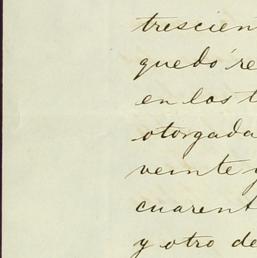 trescien
quedó re
en los t
otorgada
veinte y
cuarent
y otro de